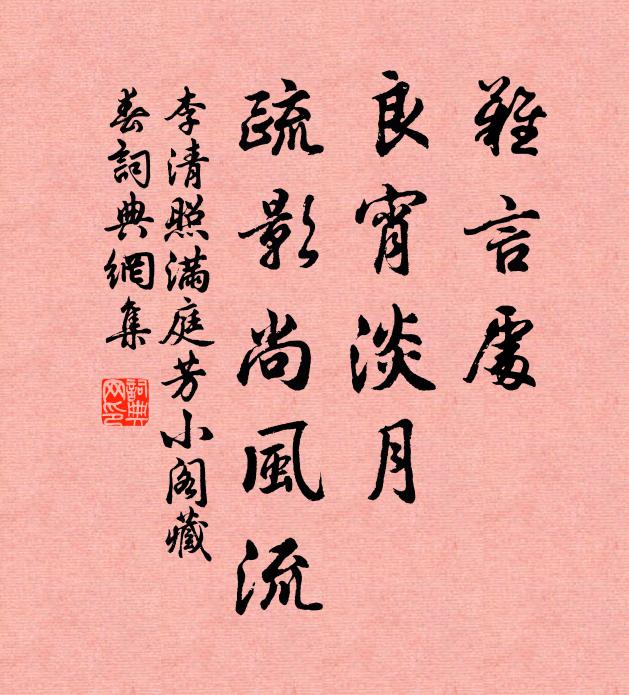 難言處
良宵淡月
疏影尚風流
李清照滿庭芳小閣藏
春詞典網集
詞典
网印